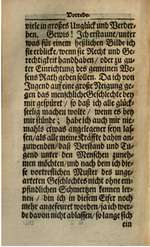 Vorrede.
viele in großes Unglück und Verder-
ben. Gewiß! Ich erstaune / unter
was für einem heßlichen Bilde ich
sie erblicke / wenn sie Recht und Ge-
rechtigkeit handhaben / oder zu gu-
ter Einrichtung des gemeinen We-
sens Rath geben sollen. Da ich von
Jugend auf eine große Neigung ge-
gen das menschliche Geschlechte bey
mir gespüret / so daß ich alle glück-
seelig machen wolte / wenn es bey
mir stünde; habe ich auch mir nie-
mahls etwas angelegener seyn las-
sen / als alle meine Kräffte dahin an-
zuwenden / daß Verstand und Tu-
gend unter den Menschen zuneh-
men möchten / und nach dem ich die-
se vortreflichen Muster des unge-
arteten Geschlechtes nicht ohne em-
pfindlichen Schmertzen kennen ler-
nen / bin ich in diesem Eifer noch
mehr angefeuert worden / ich wer-
de davon nicht ablassen / so lange sich
ein